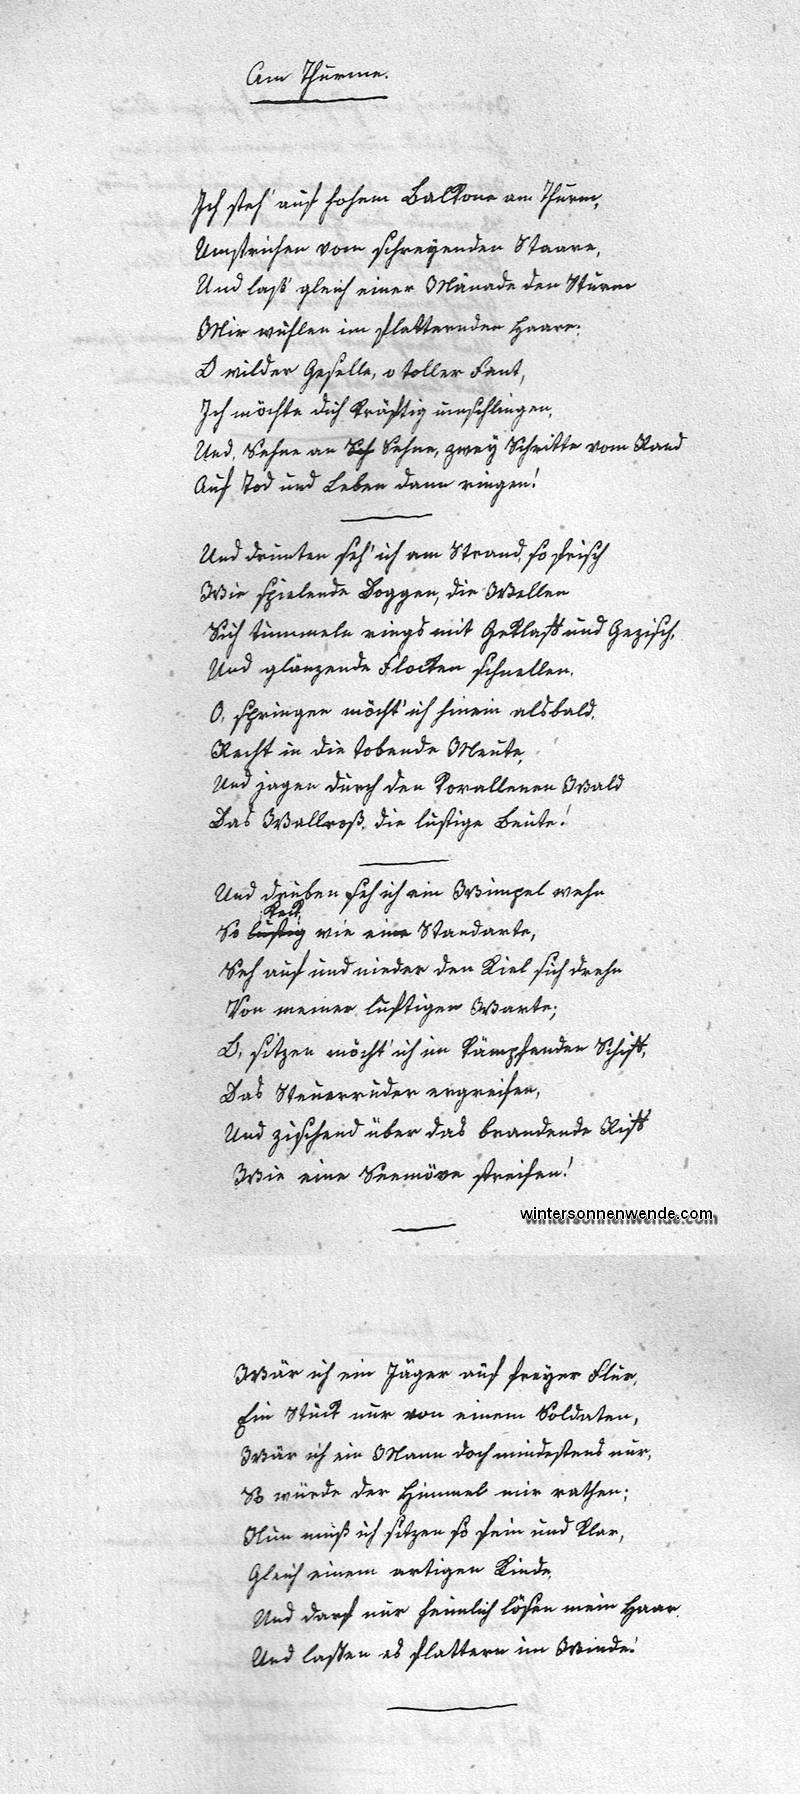 Am Thurme.
Ich steh' auf hohem Balkone am Thurm,
Umstrichen vom schreyenden Staare,
Und lass' gleich einer Mänade den Sturm
Mir wühlen im flatternden Haare;
O wilder Geselle, o toller Fant,
Ich möchte dich kräftig umschlingen,
Und, Sehne an Seh Sehne, zwey Schritte vom Rand
Auf Tod und Leben dann ringen!
Und drunten seh' ich am Strand, so frisch
Wie spielende Doggen, die Wellen
Sich tummeln rings mit Geklaff und Gezisch,
Und glänzende Flocken schnellen.
O, springen möcht' ich hinein alsbald,
Recht in die tobende Meute,
Und jagen durch den korallenen Wald
Das Wallroß, die lustige Beute!
Und drüben seh ich ein Wimpel wehn
keck
So lustig wie eine Standarte,
Seh auf und nieder den Kiel sich drehn
Von meiner luftigen Warte;
O, sitzen möcht' ich im kämpfenden Schiff,
Das Steuerruder ergreifen,
Und zischend über das brandende Riff
Wie eine Seemöve streifen!
wintersonnenwende.com
Wär ich ein Jäger auf freyer Flur,
Ein Stück nur von einem Soldaten,
Wär ich ein Mann doch mindestens nur,
So würde der Himmel mir rathen;
Nun muß ich sitzen so fein und klar,
Gleich einem artigen Kinde,
Und darf nur heimlich lösen mein Haar,
Und lassen es flattern im Winde!